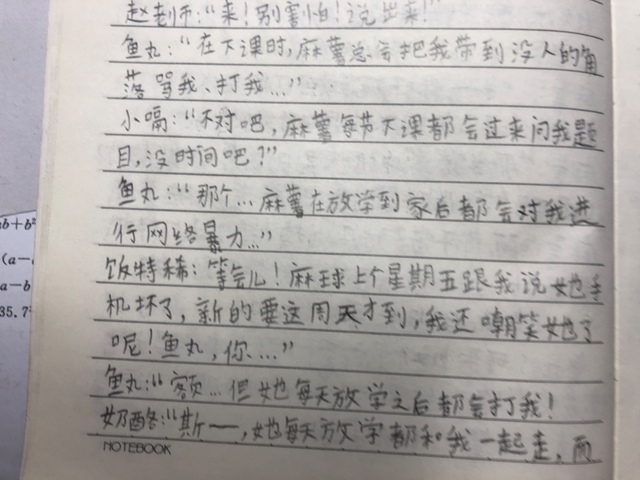 赵老师:“来!别害怕!说出来!”
鱼丸:“在下课时,麻薯总会把我带到没人的角
落骂我、打我…”
小嗝:“不对吧,麻薯每节下课都会过来问我题
目,没时间吧?”
鱼丸:“那个…麻薯在放学到家后都会对我进
行网络暴力…”
饭特稀:等会儿!麻球上个星期五跟我说她手
机坏了,新的要这周天才到,我还嘲笑她了
呢!鱼丸,你…”
鱼丸:“额…但她每天放学之后都会打我!
奶酪:“斯——,她每天放学都和我一起走,而
NOTEBOOK
ab+b²
(a-
a-b
35.7